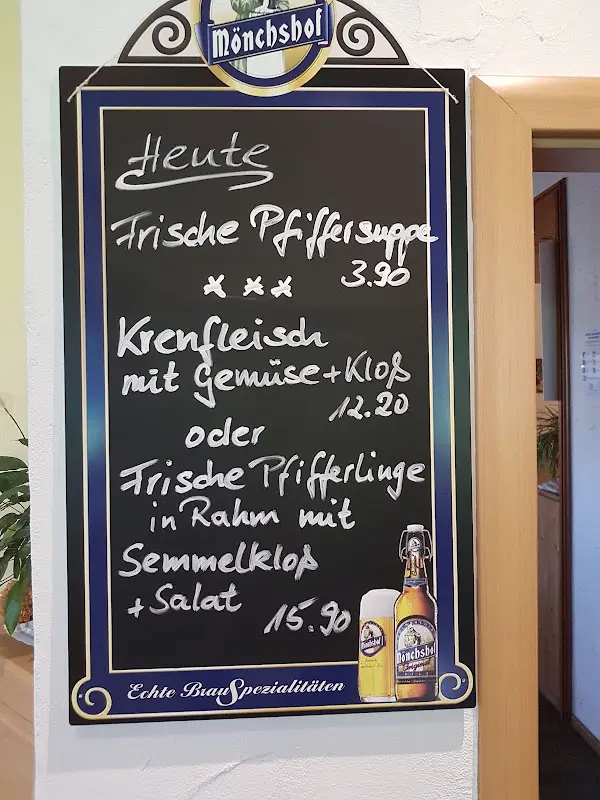 Mönchshof
Heute
Frische Pfiffersuppe
3.90
x x x
Krenfleisch
mit Gemüse + Kloß
12.20
oder
Frische Pfifferlinge
in Rahm mit
Semmelkloß
+ Salat
15.90
Mönchshof
Mönchshof
Original
Echte BrauSpezialitäten